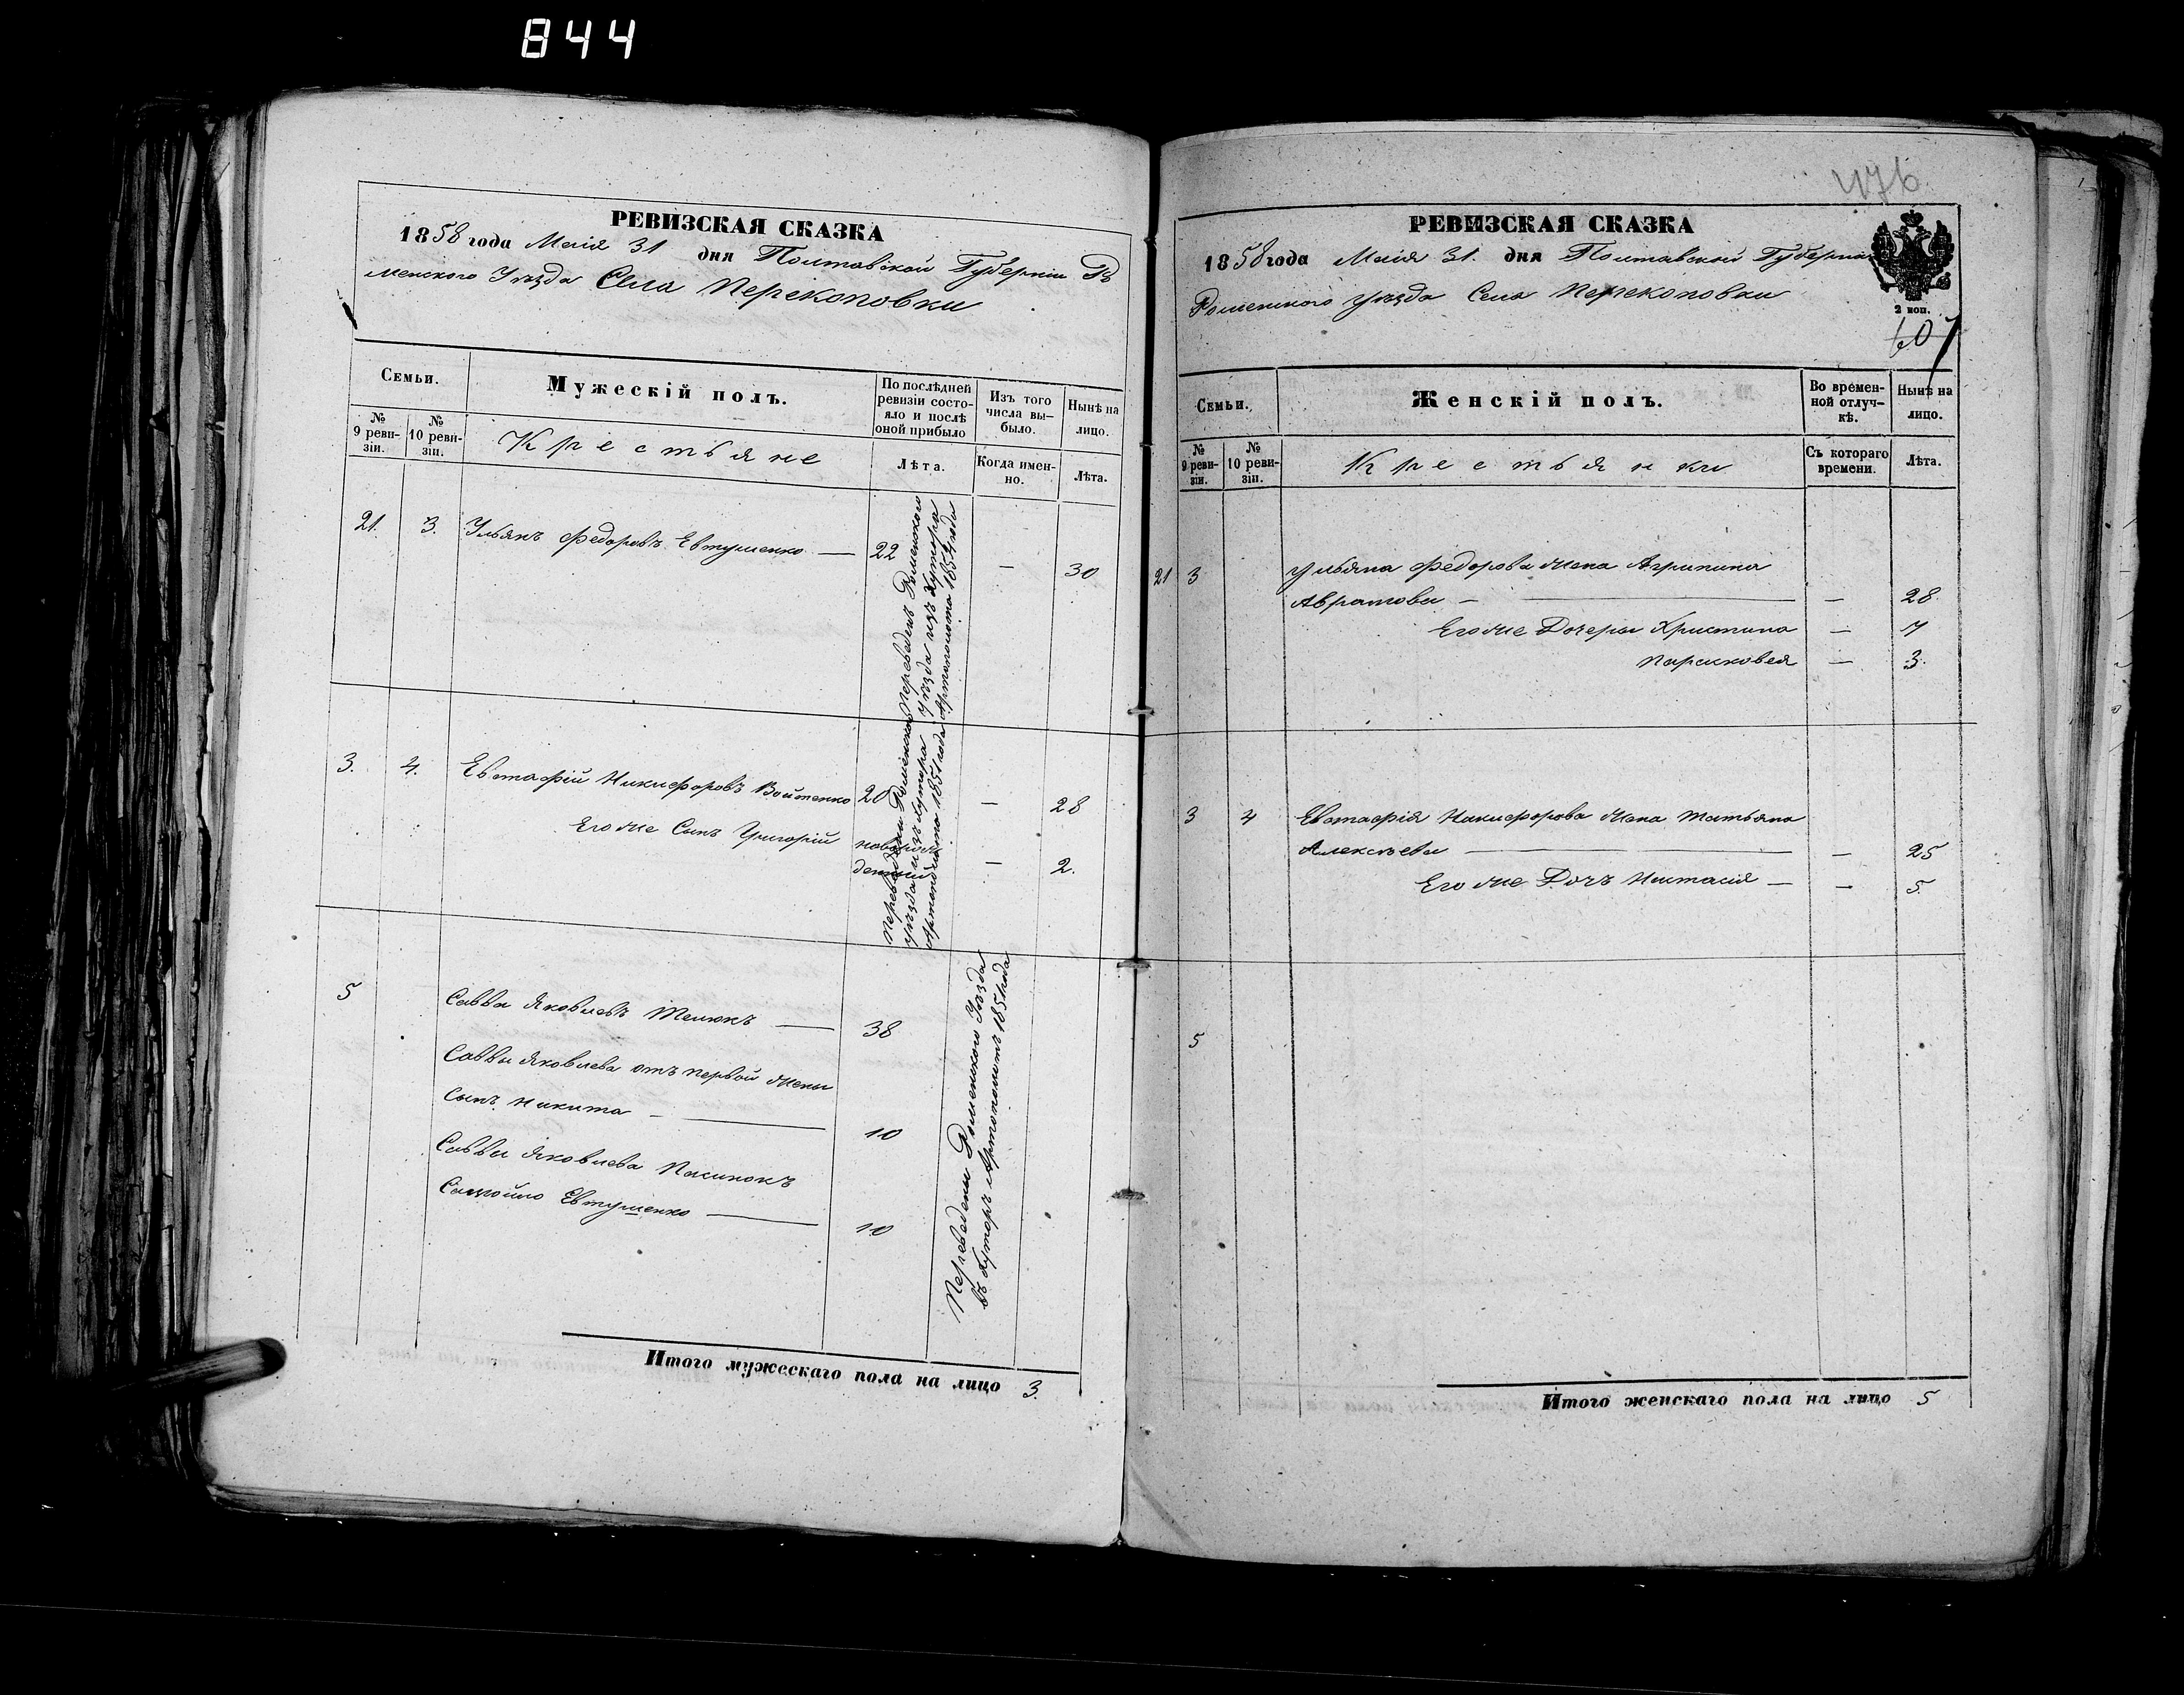 844
РЕВИЗСКАЯ СКАЗКА
1858 года Маія 31 дня Полтавской Губерніи Ро
менского Уѣзда Села Перекоповки
Семьи.
Мужескій полъ.
По послѣдней ревизіи состояло и послѣ оной прибыло
Изъ того числа выбыло.
Нынѣ на лицо.
№ 9 ревизіи.
№ 10 ревизіи.
Крестьяне
Лѣта.
Когда именно.
Лѣта.
21. 3. Ульянъ Федоровъ Евтушенко — 22 — 30
Переведенъ Роменского
уѣзда изъ Хутора
Артополота 1854 года
3. 4. Евстафій Никифоровъ Войтенко 20 — 28
Его же Сынъ Григорій новорож
денный — 2.
Переведены Роменского
уѣзда изъ Хутора
Артополота 1851 года
5 Савва Яковлевъ Телюкъ — 38
Саввы Яковлева отъ первой жены
Сынъ Никита — 10
Саввы Яковлева Пасинокъ
Самойло Евтушенко — 10
Переведены Роменского Уѣзда
въ Хуторъ Артополотъ 1851 года
Итого мужескаго пола на лицо 3.
476
РЕВИЗСКАЯ СКАЗКА
1858 года Маія 31. дня Полтавской Губерніи
Роменского уѣзда Села Перекоповки
2 коп.
607
Семьи.
Женскій полъ.
Во временной отлучкѣ.
Нынѣ на лицо.
№ 9 ревизіи.
№ 10 ревизіи.
Крестьянки
Съ котораго времени.
Лѣта.
21 3 Ульяна Федорова жена Агрипина
Аврамова — — 28
Его же Дочери Христина — 7
Парасковея — 3.
3 4 Евстафія Никифорова жена Татьяна
Алексѣева — — 25
Его же Дочь Настасія — — 5.
5
Итого женскаго пола на лицо 5